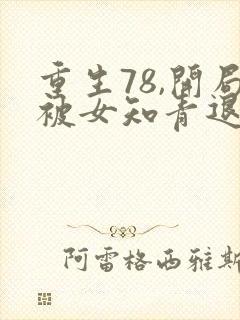 重生78,開局
被女知青退
阿雷格西雅斯